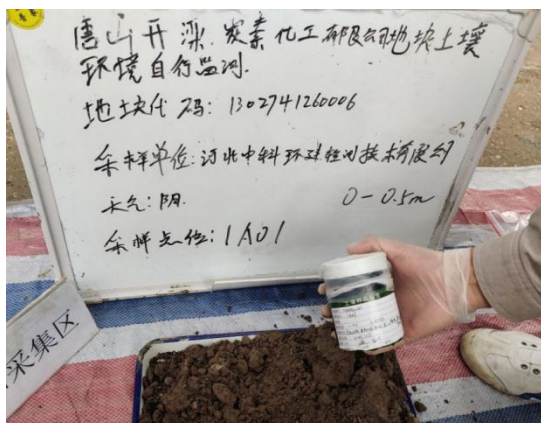 唐山开滦炭素化工有限公司地块土壤
环境自行监测.
地块代码: 1302741260006
采样单位: 河北中科环建检测技术有限公司
天气: 阴.
0-0.5m
采样点位: 1A01
采集区